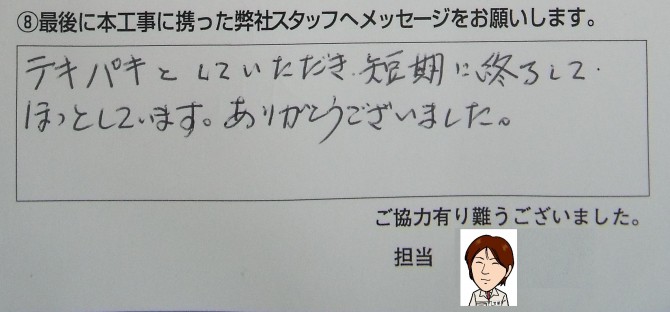 ⑧最後に本工事に携った弊社スタッフへメッセージをお願いします。
テキパキとしていただき、短期に終了して
ほっとしています。ありがとうございました。
ご協力有り難うございました。
担当